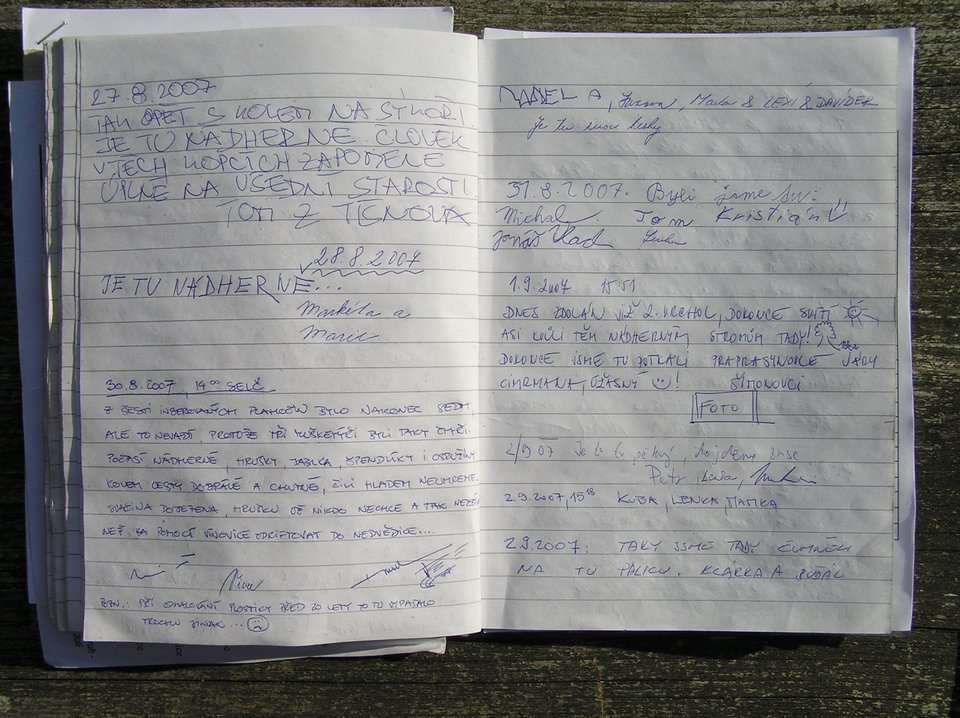 27.8.2007
TAK OPĚT S KOLEM NA SÝKOŘI
JE TU NÁDHERNĚ ČLOVĚK
V TĚCH KOPCÍCH ZAPOMENE
ÚPLNĚ NA VŠEDNÍ STAROSTI
TOM Z TIŠNOVA
28.8.2007
JE TU NÁDHERNĚ...
Markéta a
Marie
30.8.2007, 14°° SELČ
Z ŠESTI BYLO NAKONEC SEDM,
ALE TO NEVADÍ, PROTOŽE TŘI MUŠKETÝŘI BYLI TAKY ČTYŘI.
POČASÍ NÁDHERNÉ, HRUŠKY, JABLKA, ŠPENDLÍKY I OSTRUŽINY
KOLEM CESTY DOBRÉ A CHUTNÉ, ČILI HLADEM NEUMŘEME.
SVAČINA DOJEDENA, HRUŠKU UŽ NIKDO NECHCE A TAK NEZBÝ
NEŽ ZA POMOCI VÍNOVICE ODDRIFTOVAT DO NEDVĚDICE...
POZN.: PŘI PLOSTICY PŘED 20 LETY TO TU VYPADALO
TROCHU JINAK...
, & & DAVÍDEK
Je tu moc hezky
31.8.2007. Byli jsme tu:
Michal Tom Kristián
Jonáš Vlad Lenka
1.9.2007 15 51
DNES ZDOLÁN JIŽ 2. VRCHOL, DOKONCE SVÍTÍ
ASI KVŮLI TĚM NÁDHERNÝM STROMŮM TADY!
DOKONCE JSME TU POTKALI PRAPRASYNOVCE JÁRY
CIMRMANA, ÚŽASNÝ ! ŠIMONOVCI
FOTO
2/9 07 Je to tu pěkný, dojdeme zase
Petr,
2.9.2007, 15 KUBA, LENKA, MATKA
2.9.2007: TAKY JSME TADY ČUMNĚLI
NA TU . KLÁRKA A